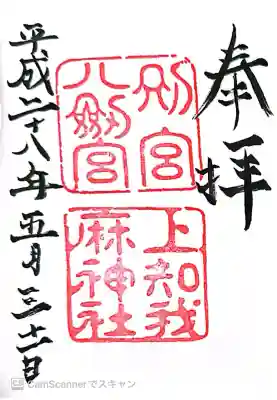 奉拝
別宮
八剱宮
上知我
麻神社
平成二十八年五月三十一日
CS CamScannerでスキャン